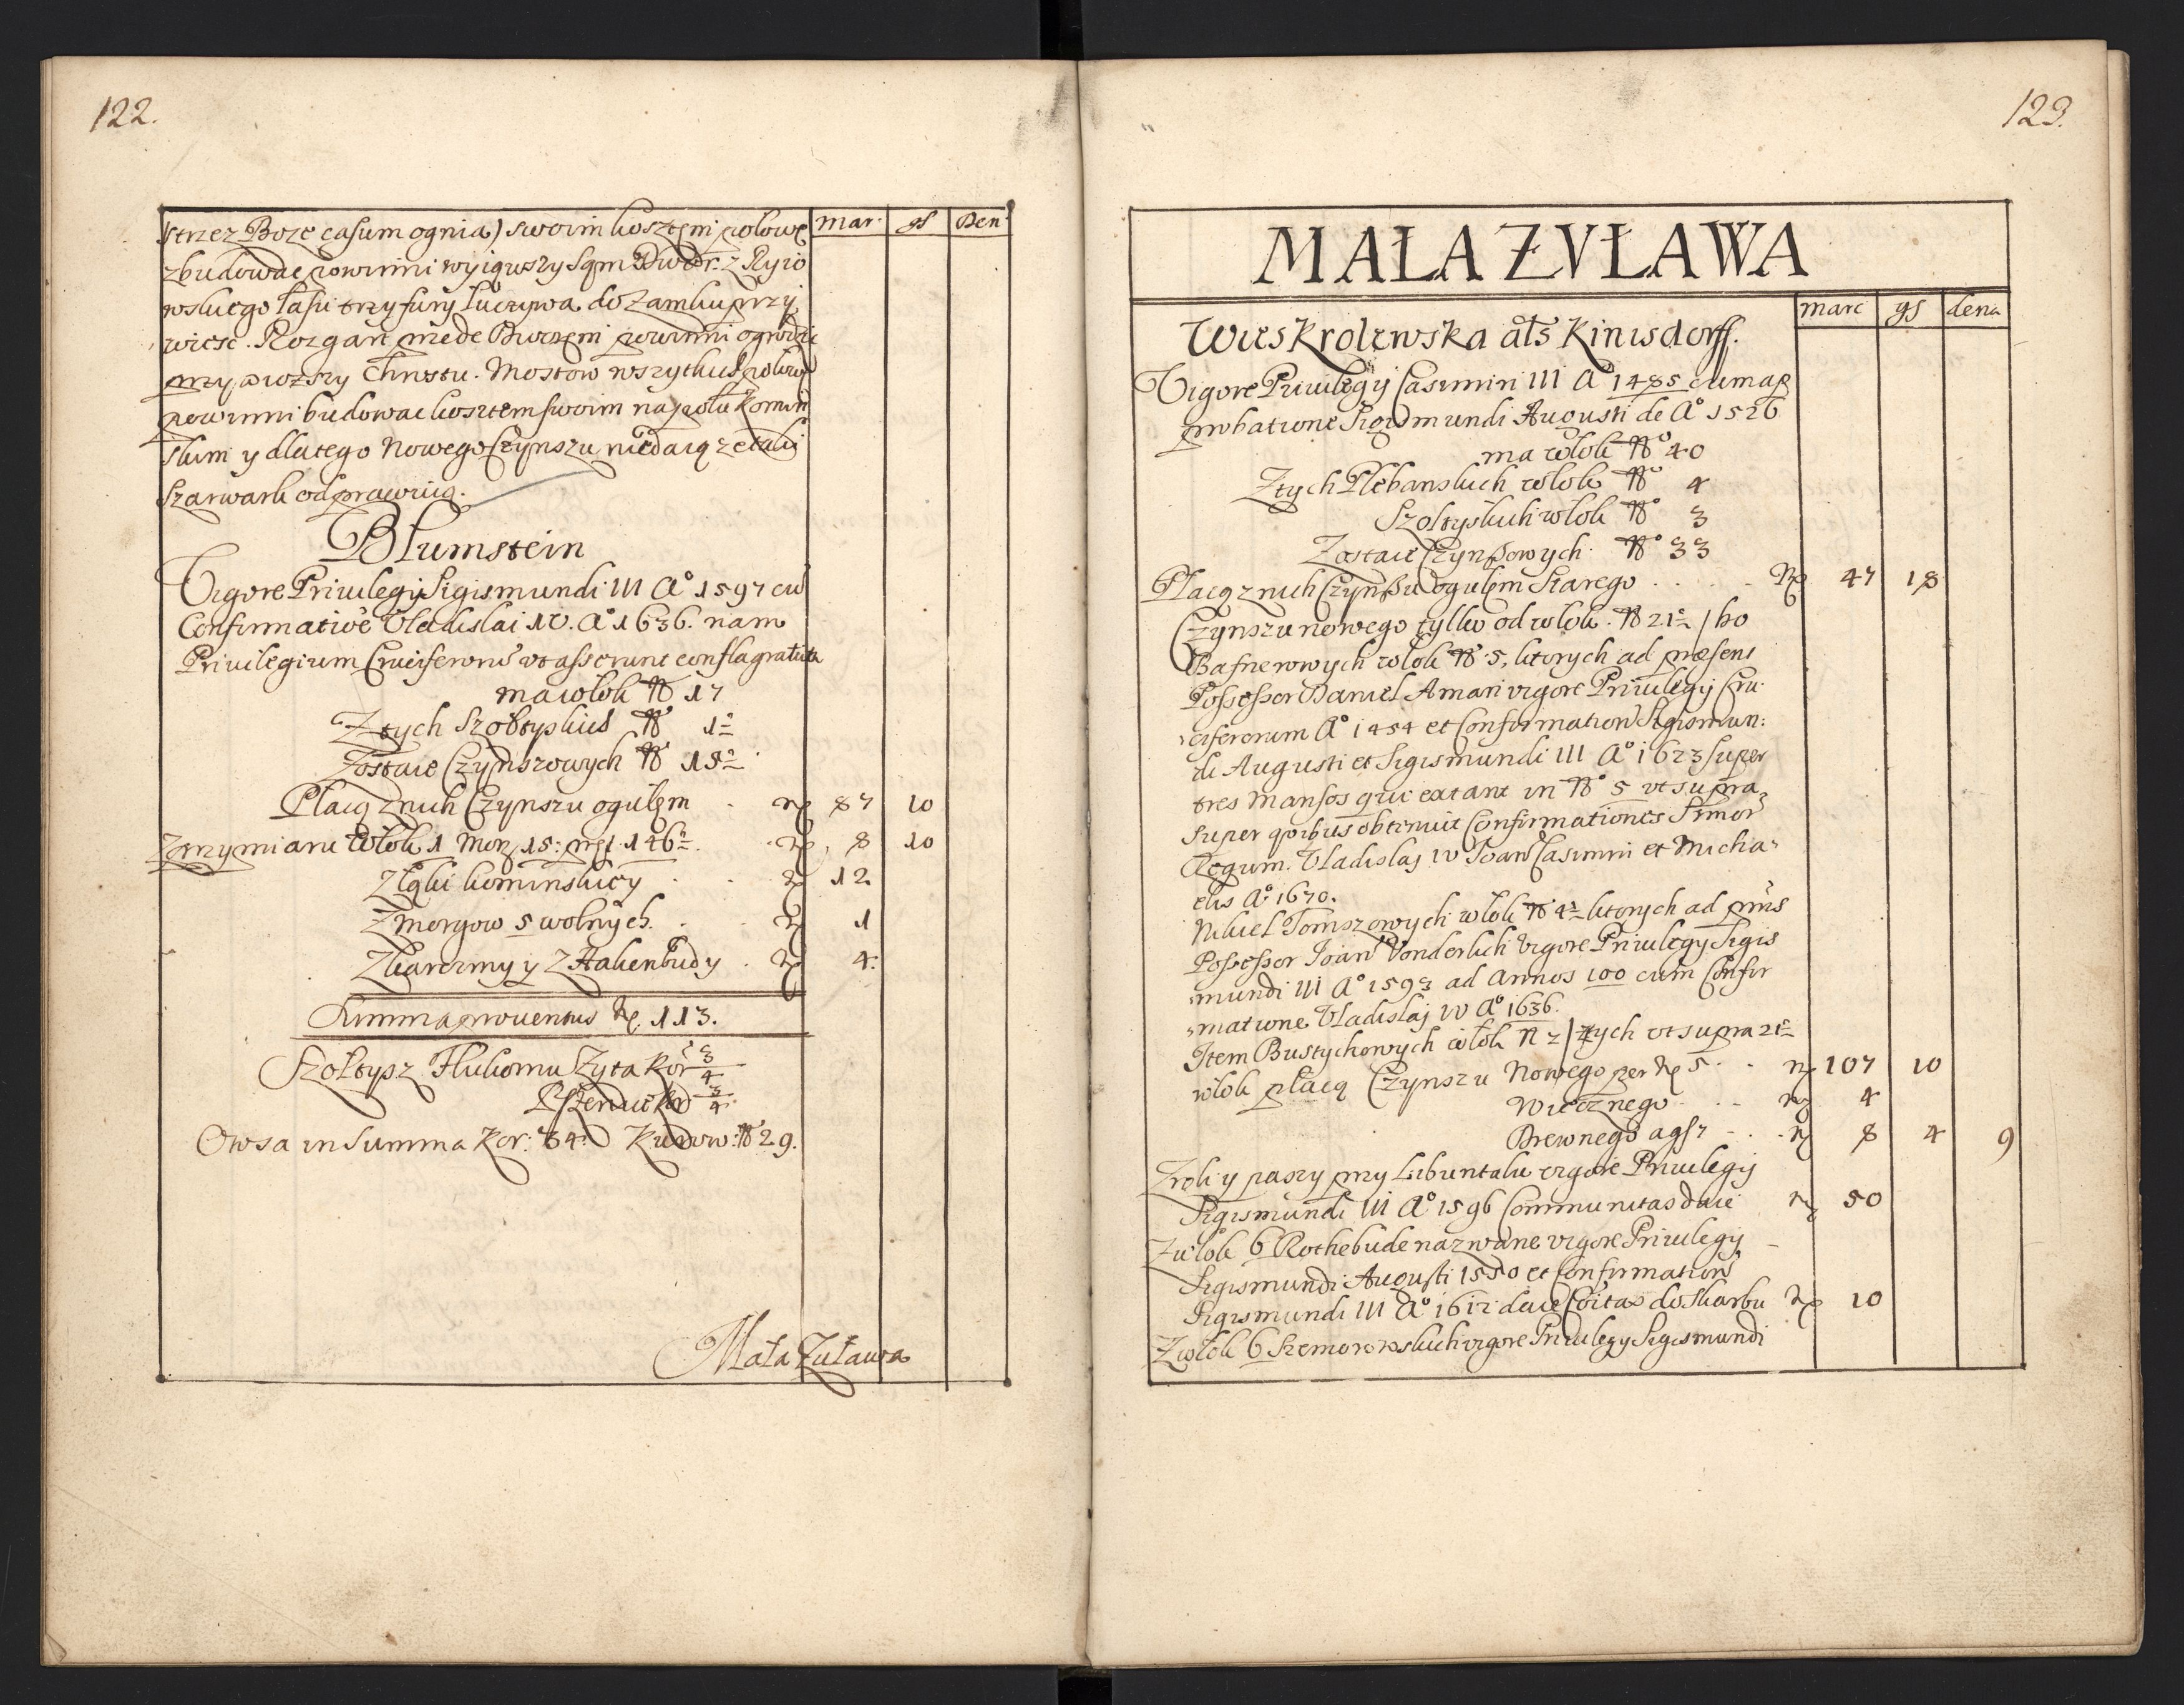 122.
strzez Boze casum ognia) swoim kosztem polowe
mar. gs Den
zbudowac powinni wyiąwszy Sąm Dwor. z Ryio
wskiego lasu trzy fury luczywa do Zamku przy
wiesc. Rozgart przede Dworzem powinni ogrodzic
przy dwozszy Chrostu. Mostow wszytkich polowe
powinni budowac kosztem swoim na polu Komin
skim y dlatego Nowego Czynszu niedaią z etaki
Szarwark odprawuią.
Blumstein
Vigore Priuilegij Sigismundi III A° 1597 cu
Confirmatioe Vladislai IV. A° 1636. nam
Priuilegium Cruciferorū vt asserunt conflagratū
ma wlok N 17
Z tych Szołtyskich N° 1½
Zostaie Czynszowych N° 15½
Płacą znich Czynszu ogułem . m 87 10
Z przymiaru Włok 1 Morg 15: pręt 146½ . m 8 10
Z łąki kominskiey . . m 12
Z morgow 5 wolnych. . m 1
Z karczmy y Z Hakenbudy . m 4.
Summa prouentus m. 113.
Szołtysz Hukomu Zyta Kor ¾
Pszenice Kor ¾
Owsa in Summa Kor: 34. Kurow: N 29.
Mała Zuława
123.
MAŁA ZVŁAWA
marc gs dena
Wies Krolewska als Kinisdorff.
Vigore Priuilegij Casimiri III A° 1485 cum ap
probatione Sigismundi Augusti de A° 1526
ma włok N° 40
Z tych Plebanskich włok N° 4
Szołtyskich włok N° 3
Zostaie Czynszowych. N° 33
Płacą znich Czynszu ogułem Starego . . . m 47 18
Czynszu nowego tylko od włok. N 21½ / bo
Basnerowych włok N° 5, ktorych ad præsens
Possessor Daniel Aman vigore Priuilegij Cru:
ciferorum A° 1454 et Confirmationū Sigismun:
di Augusti et Sigismundi III A° 1623 super
tres Mansos qui extant in N° 5 vt supra,
super quibus obtinuit Confirmationes Srmor
Regum. Vladislaj IV Joan Casimiri et Micha
elis A° 1670.
Nikiel Tomszowych włok N 4½ ktorych ad præns
Possessor Joan Vonderlich vigore Priuilegij Sigis
mundi III A° 1593 ad Annos 100 cum Confir
matione Vladislaj IV A° 1636.
Item Bustychowych włok N 2 / Z tych vt supra 21½
włok płacą Czynszu Nowego per m 5. . m 107 10
Wiecznego . . m 4
Drewnego a gs 7 . . m 8 4 9
Z roli y paszy przy Libuntalu vigore Priuilegij
Sigismundi III A° 1596 Communitas daie m 50
Z włok 6 Rothebude nazwane vigore Priuilegij
Sigismundi Augusti 1550 et Confirmationū
Sigismundi III A° 1612 daie Coitas do Skarbu m 10
Z włok 6 Szemorowskich vigore Priuilegij Sigismundi